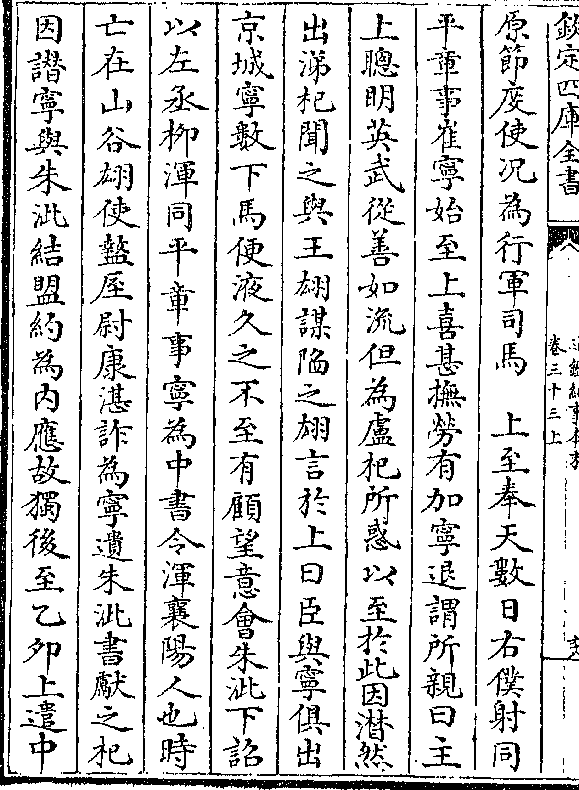 欽定四庫全書
卷三十三上
原節度使况為行軍司馬　上至奉天數日右僕射同
平章事崔寧始至上喜甚撫勞有加寧退謂所親曰主
上聰明英武從善如流但為盧杞所惑以至於此因潸然
出涕杞聞之與王翃謀陷之翃言於上曰臣與寧俱出
京城寧數下馬便液久之不至有顧望意會朱泚下詔
以左丞柳渾同平章事寧為中書令渾襄陽人也時
亡在山谷翃使盩厔尉康湛詐為寧遺朱泚書獻之杞
因譖寧與朱泚結盟約為内應故獨後至乙卯上遣中